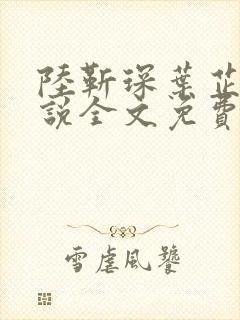 陸靳琛葉芷
說全文免費
雪虐風饕